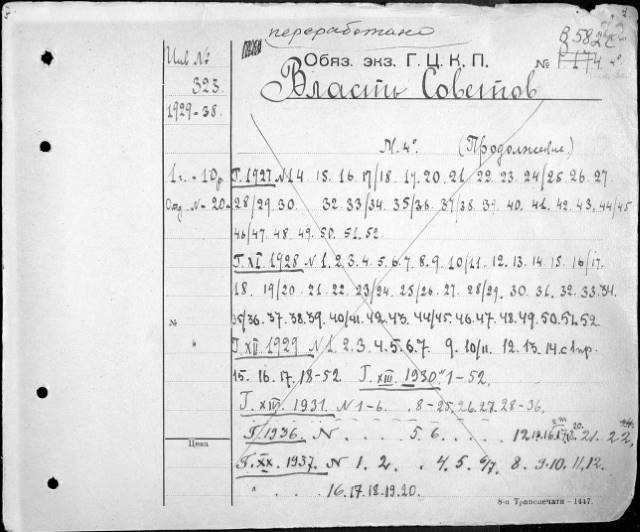 переработано
Инв № Обяз. экз. Г.Ц.К.П. №
323. Власть Советов
1929-38.
М. 4° (Продолжение)
1 г. - 10 р Г. 1927 N 14. 15. 16. 17/18. 19. 20. 21. 22. 23. 24/25. 26. 27.
Отд. N - 20 - 28/29. 30. 32. 33/34. 35/36. 37/38. 39. 40. 41. 42. 43. 44/45
46/47. 48. 49. 50. 51. 52.
Г. XI. 1928 N 1. 2. 3. 4. 5. 6. 7. 8. 9. 10/11. 12. 13. 14. 15. 16/17.
18. 19/20. 21. 22. 23/24. 25/26. 27. 28/29. 30. 31. 32. 33. 34.
№ 35/36. 37. 38. 39. 40/41. 42. 43. 44/45. 46. 47. 48. 49. 50. 51. 52.
Г. XII. 1929 N 1. 2. 3. 4. 5. 6. 7. 9. 10/11. 12. 13. 14. с 1 пр.
15. 16. 17. 18-52 Г. XIII. 1930. 1-52.
Г. XIII. 1931. N 1-6. 8-25. 26. 27. 28-36.
Г. 1936. N . . . . 5. 6. . . . . . 21. 22
Цена Г. XX. 1937. N 1. 2. . 4. 5. 6/7. 8. 9. 10. 11. 12.
" . . . . 16. 17. 18. 19. 20.
8-я Транспечати - 1447.